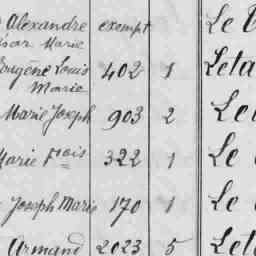 Alexandre exempt Le
César Marie
Eugène Louis 402 1 Leta
Marie
Marie Joseph 903 2 Le
Marie Fcois 322 1 Le
Joseph Marie 170 1 Le
Armand 2023 5 Let